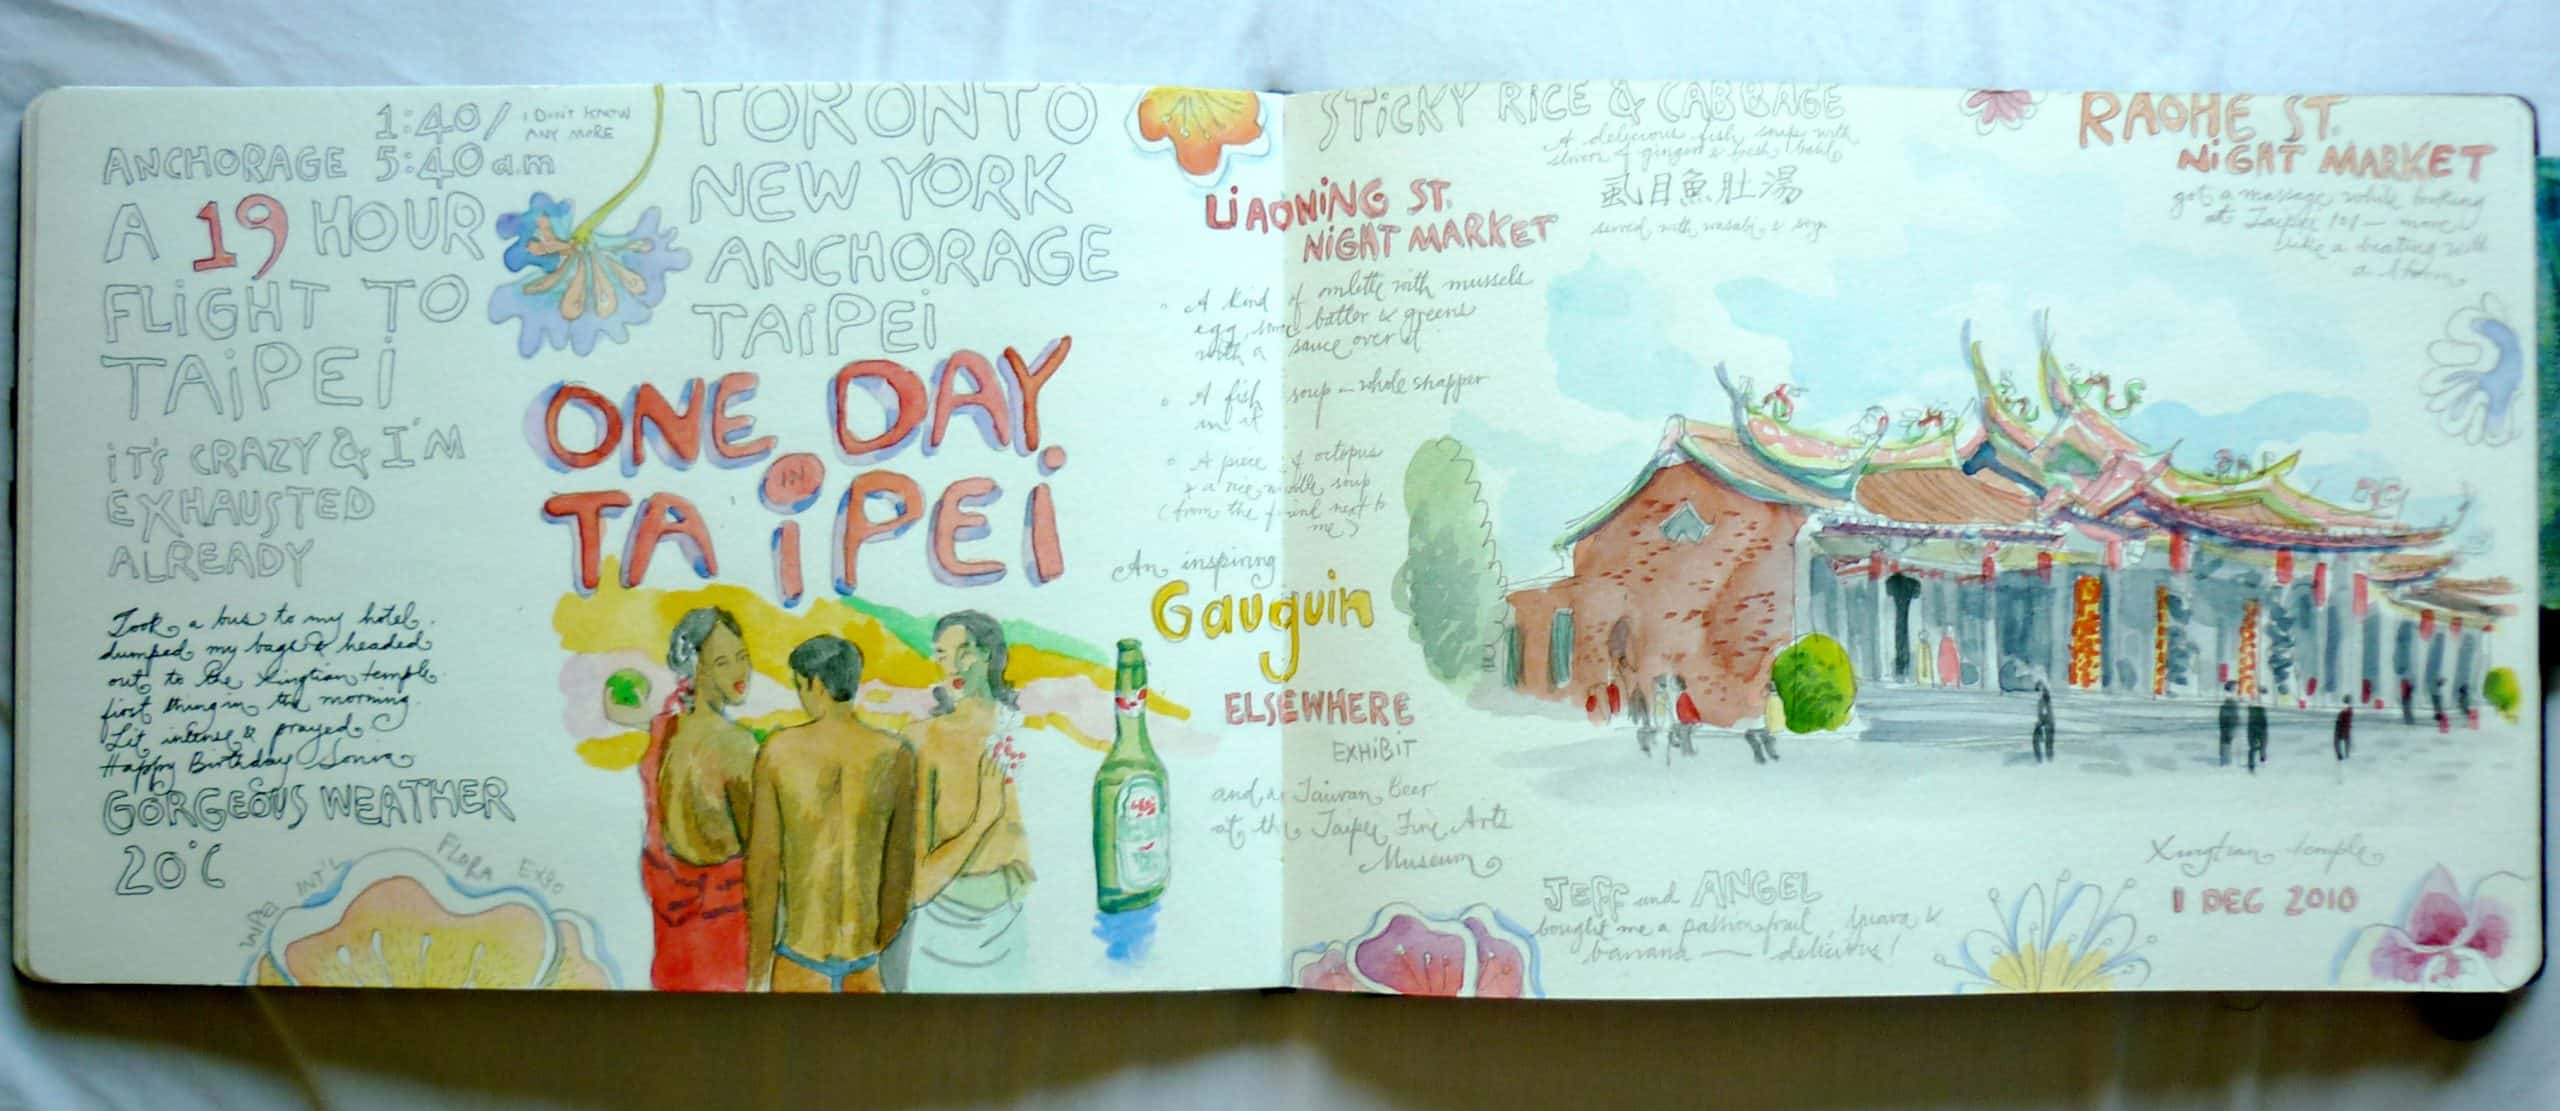 1:40/ I DON'T KNOW
ANY MORE
ANCHORAGE 5:40 am
A 19 HOUR
FLIGHT TO
TAIPEI
IT'S CRAZY & I'M
EXHAUSTED
ALREADY
Took a bus to my hotel.
dumped my bags & headed
out to the Xingtian temple
first thing in the morning.
Lit intense & prayed
Happy Birthday Sonia
GORGEOUS WEATHER
20°C
INT'L FLORA EXPO
TORONTO
NEW YORK
ANCHORAGE
TAIPEI
ONE DAY
IN
TAIPEI
STICKY RICE & CABBAGE
A delicious fish soup with
slivers of ginger & fresh basil
虱目魚肚湯
served with wasabi & soy
LIAONING ST.
NIGHT MARKET
A kind of omlette with mussels
egg, some batter & greens
with a sauce over it
A fish soup - whole snapper
in it
A piece of octopus
& a rice noodle soup
(from the friend next to
me)
An inspiring
Gauguin
ELSEWHERE
EXHIBIT
and a Taiwan Beer
at the Taipei Fine Arts
Museum
RAOHE ST.
NIGHT MARKET
got a massage while looking
at Taipei 101 - more
like a beating with
a
Xingtian temple
1 DEC 2010
JEFF and ANGEL
bought me a passionfruit, guava &
banana — delicious!